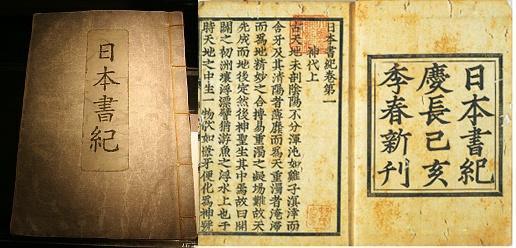 日本書紀
日本書紀
慶長己亥
季春新刊
日本書紀卷第一
神代上
古天地未剖陰陽不分渾沌如雞子溟涬而
含牙及其清陽者薄靡而爲天重濁者淹滯
而爲地精妙之合搏易重濁之凝場難故天
先成而地後定然後神聖生其中焉故曰開
闢之初洲壤浮漂譬猶游魚之浮水上也于
時天地之中生一物狀如葦牙便化爲神號